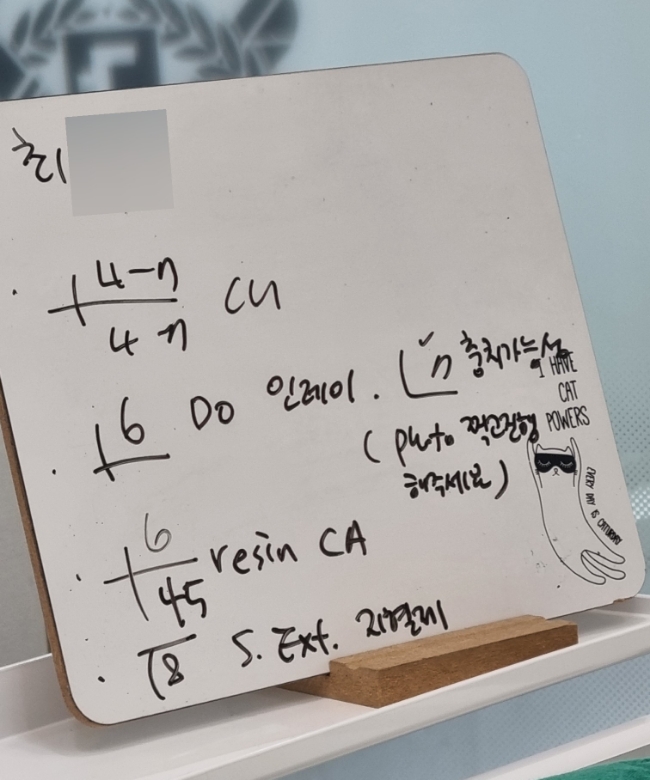 최
4-7
4-7 CU
6 DO 인레이. 7 충치가능성
(photo 찍고진행
해주세요)
6
45 resin CA
8 S. Ext. 지혈제
I HAVE
CAT
POWERS
EVERY DAY IS CATURDAY